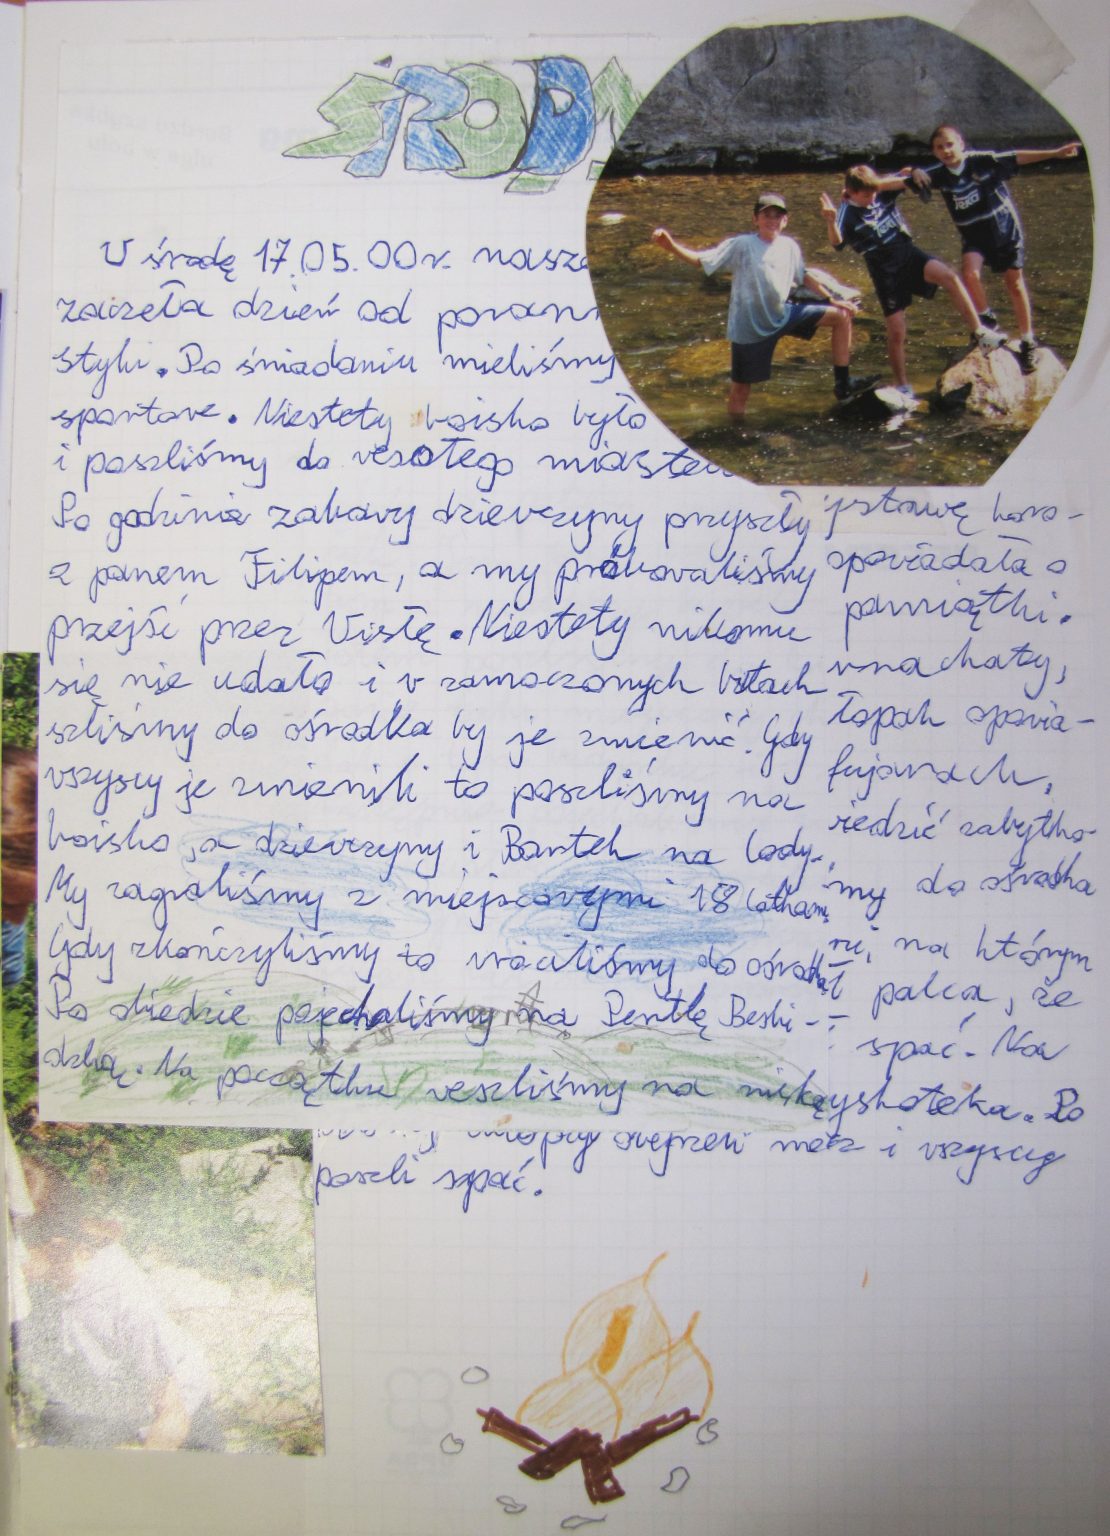 ŚRODA
W środę 17.05.00r. nasza
zaczęła dzień od porann
styki. Po śniadaniu mieliśmy
sportowe. Niestety boisko było
i poszliśmy do wesołego miastecz
Po godzinie zabawy dziewczyny przyszły
z panem Filipem, a my próbowaliśmy
przejść przez Wisłę. Niestety nikomu
się nie udało i w zamoczonych butach
szliśmy do ośrodka by je zmienić. Gdy
wszyscy je zmienili to poszliśmy na
boisko, a dziewczyny i Bartek na lody.
My zagraliśmy z miejscowymi 18 latkami
Gdy zkończyliśmy to wróciliśmy do ośrodka.
Po obiedzie pojechaliśmy na Pentlę Beski-
dzką. Na początku weszliśmy na miską
ystawę koro-
opowiadała o
pamiątki.
wna chaty,
łopak opowia-
fujarach.
iedzić zabytko-
my do ośrodka
na którym
palca, że
spać. Na
yskoteka. Po
chłopcy obejrzeli mecz i wszyscy
poszli spać.